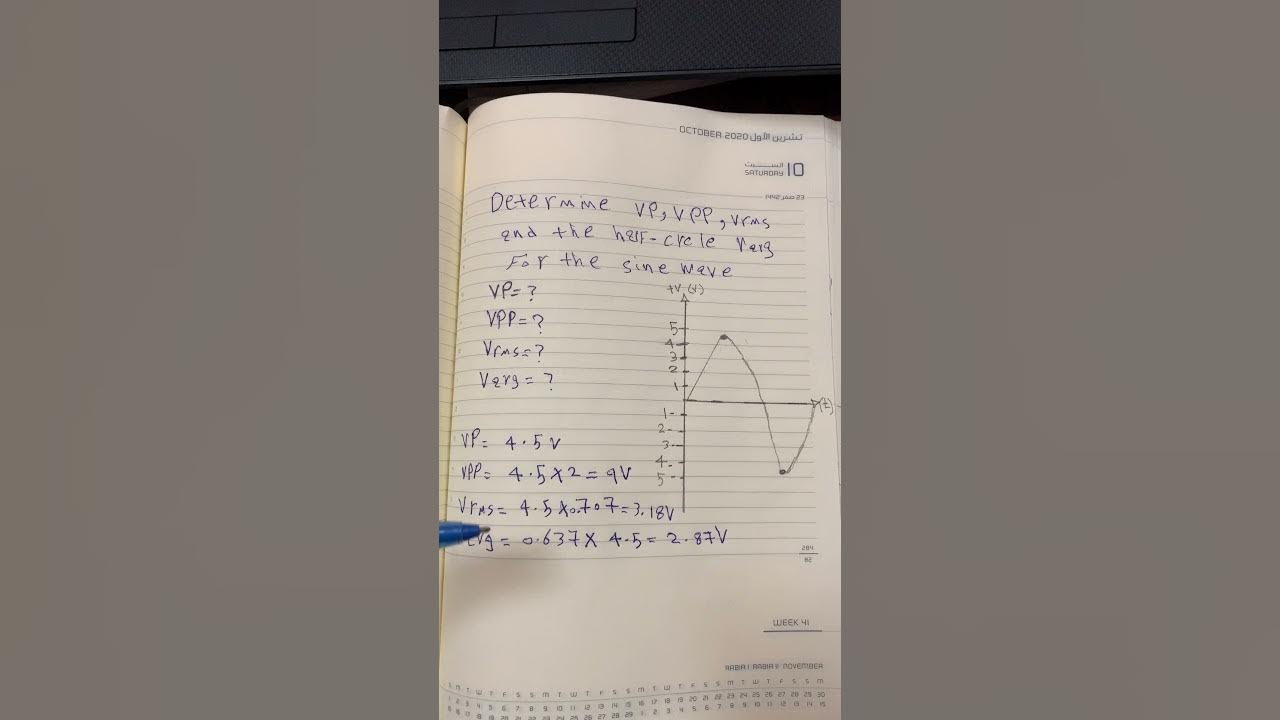 OCTOBER 2020 تشرين الأول
السبت
SATURDAY
10
23 صفر 1442
Determine VP, VPP, Vrms
and the half-crcle Varg
For the sine wave
VP= ?
VPP= ?
Vrms=?
Varg= ?
+V (V)
5
4
3
2
1
(t)
1
2
3
4
5
VP= 4.5 V
VPP= 4.5 X 2 = 9V
Vrms= 4.5 X0.707=3.18V
= 0.637 X 4.5 = 2.87V
284
82
WEEK 41
RABIA I RABIA II NOVEMBER
S M T W T F S S M T W T F S S M T W T F S S M T W T F S S M